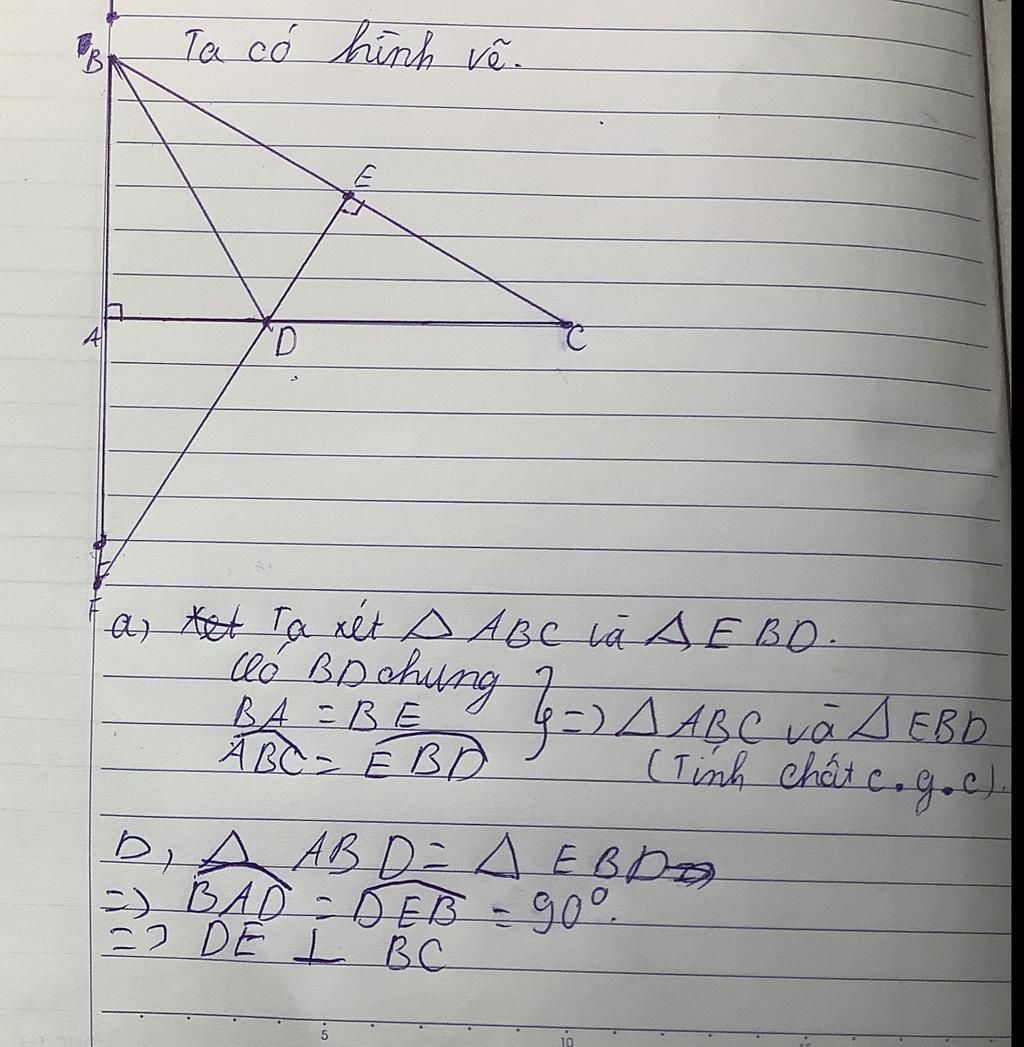 B
Ta có hình vẽ.
E
A
D
C
F
a, Xet Ta xét Δ ABC và Δ EBD.
Có BD chung
BA = BE } => Δ ABC và Δ EBD
ABC = EBD (Tính chất c.g.c).
D, Δ ABD = Δ EBD =>
=> BAD = DEB = 90°.
=> DE ⊥ BC
5
10